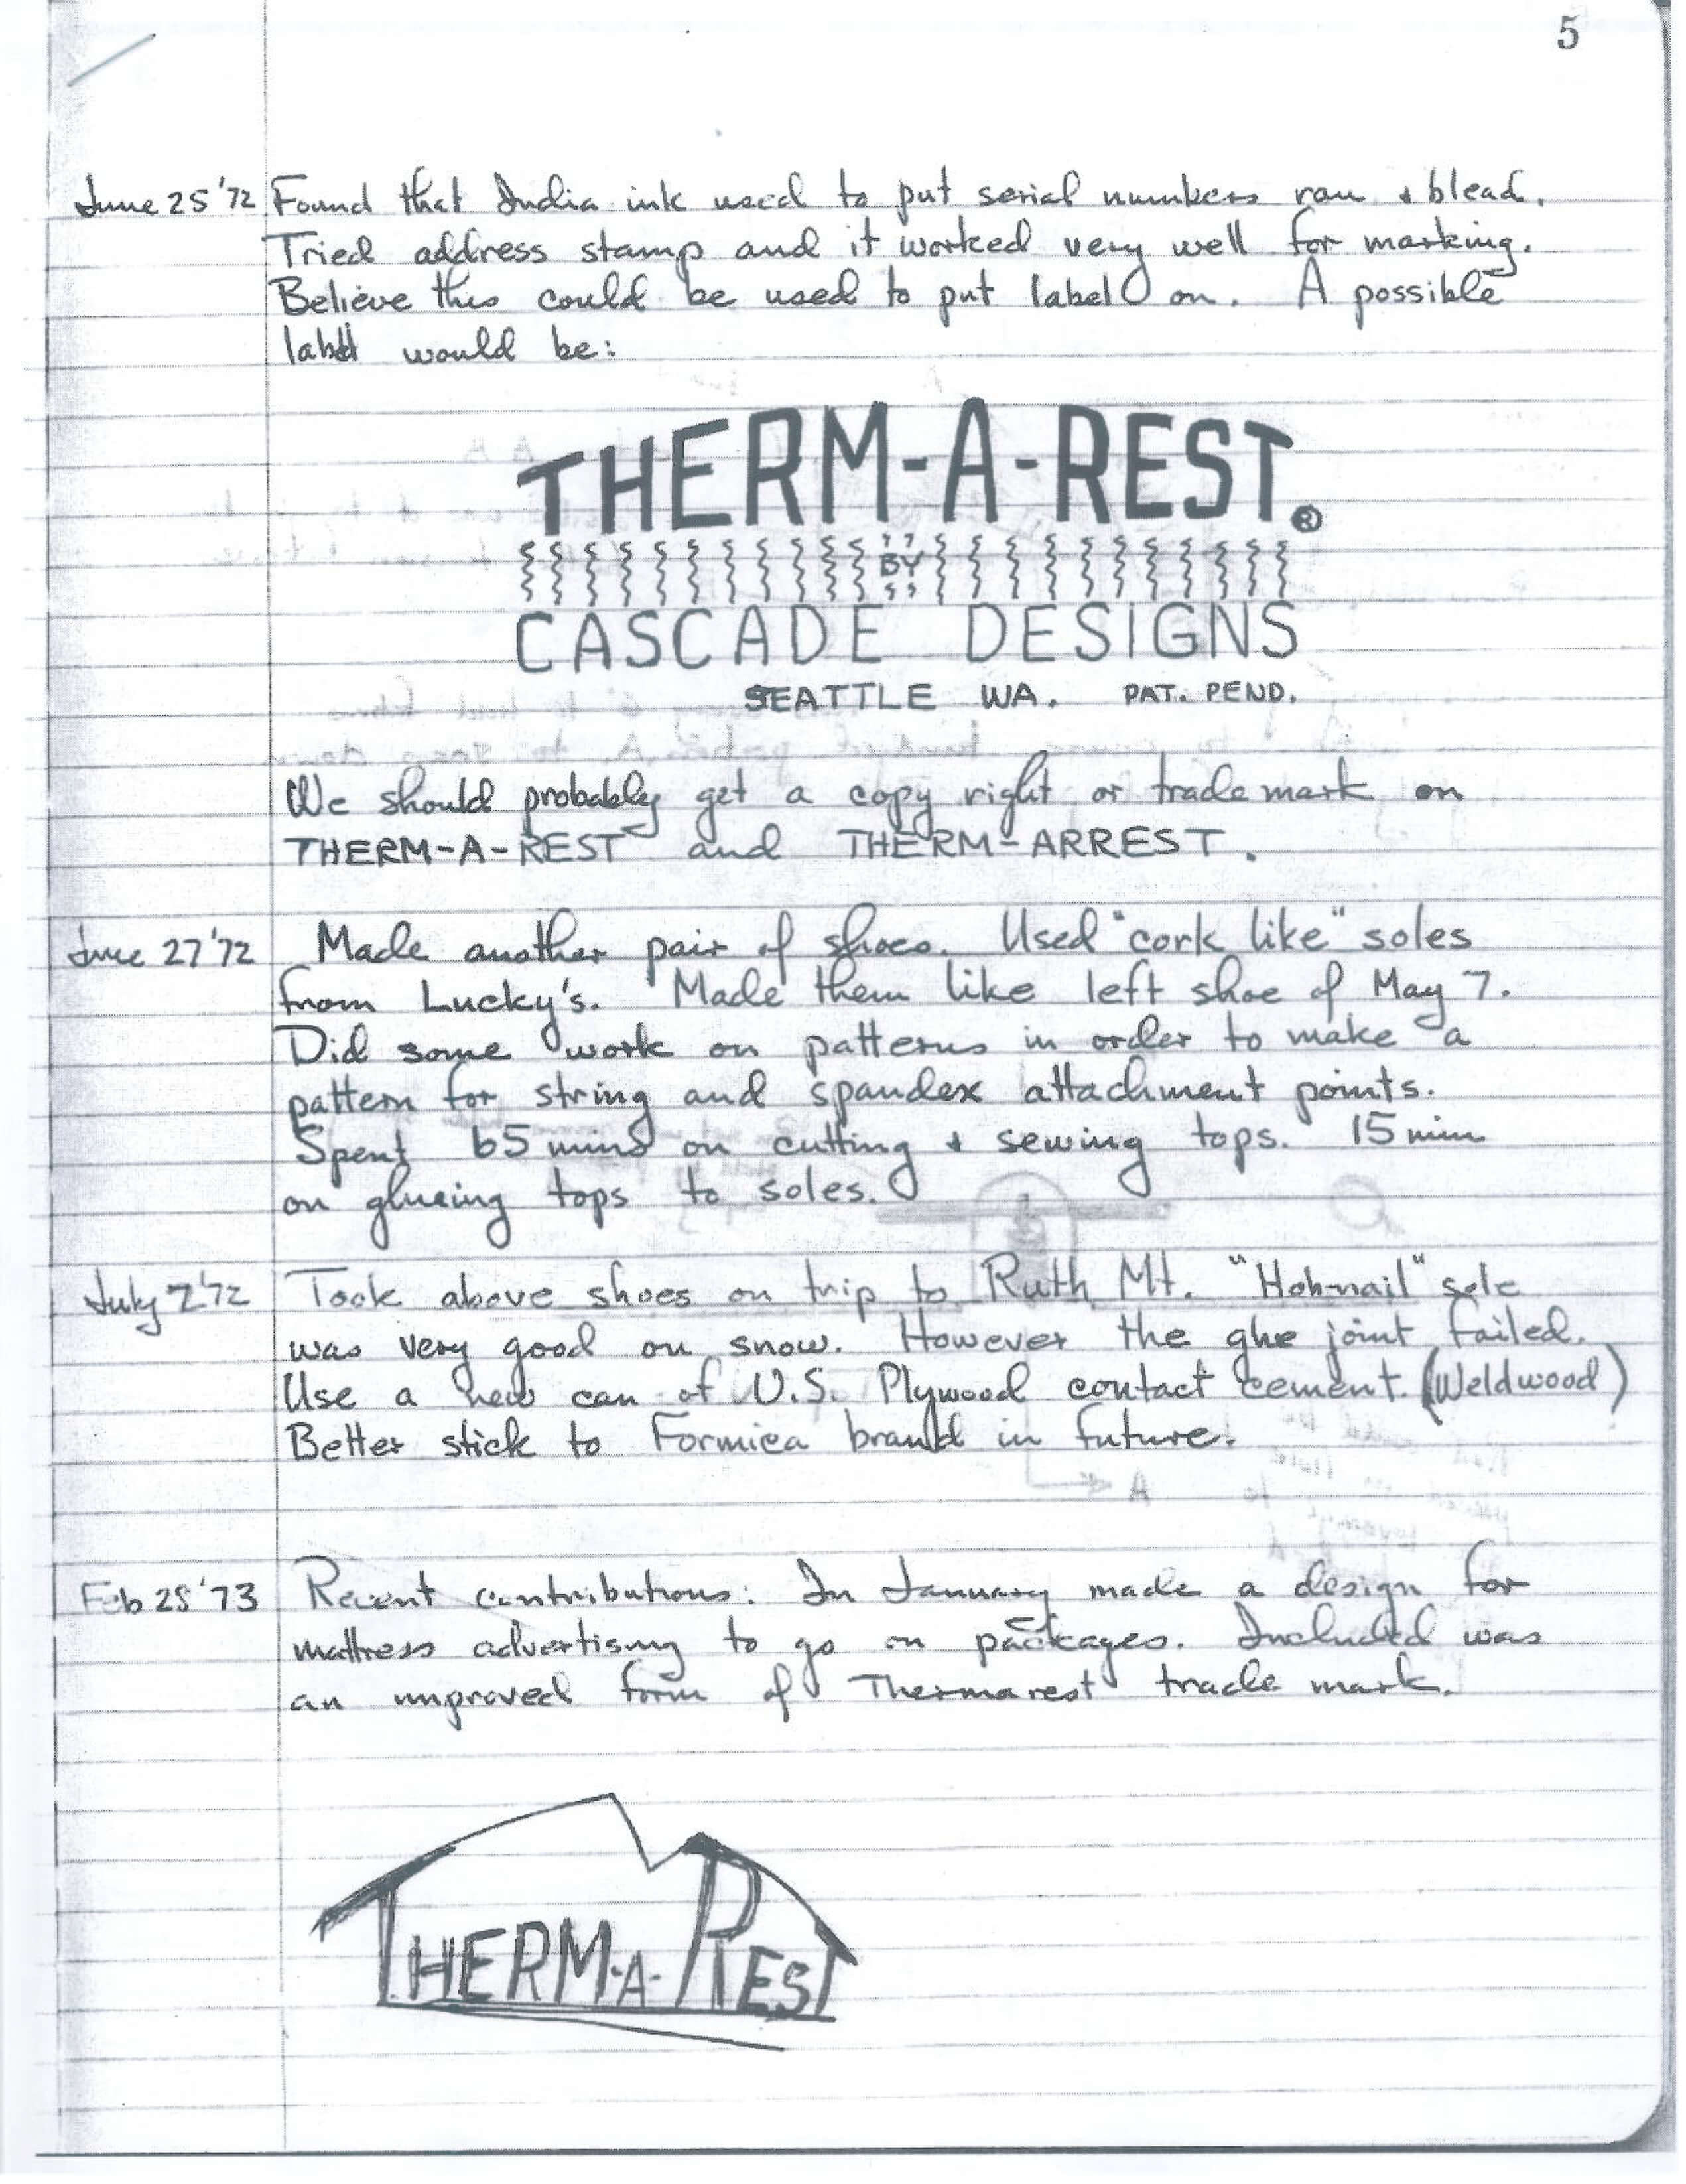 5
June 25 '72 Found that India ink used to put serial numbers ran & blead.
Tried address stamp and it worked very well for marking.
Believe this could be used to put label on. A possible
label would be:
THERM-A-REST®
BY
CASCADE DESIGNS
SEATTLE WA. PAT. PEND.
We should probably get a copy right or trade mark on
THERM-A-REST and THERM-ARREST.
June 27 '72 Made another pair of shoes. Used "cork like" soles
from Lucky's. Made them like left shoe of May 7.
Did some work on patterns in order to make a
pattern for string and spandex attachment points.
Spent 65 mins on cutting & sewing tops. 15 min
on glueing tops to soles.
July 2 '72 Took above shoes on trip to Ruth Mt. "Hob-nail" sole
was very good on snow. However the glue joint failed.
Use a new can of U.S. Plywood contact cement. (Weldwood)
Better stick to Formica brand in future.
Feb 25 '73 Recent contributions: In January made a design for
mattress advertising to go on packages. Included was
an improved form of Thermarest trade mark.
THERM-A-REST